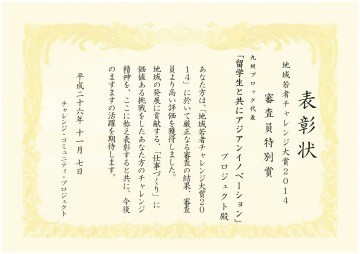 表彰状
地域若者チャレンジ大賞2014
審査員特別賞
九州ブロック代表
「留学生と共にアジアンイノベーション」
プロジェクト殿
あなた方は、「地域若者チャレンジ大賞20
14」に於いて厳正なる審査の結果、審査
員より高い評価を獲得しました。
地域の発展に貢献する、「仕事づくり」に
価値ある挑戦をしたあなた方のチャレンジ
精神を、ここに称え表彰すると共に、今後
のますますの活躍を期待します。
平成二十六年 十一月 七日
チャレンジ・コミュニティ・プロジェクト